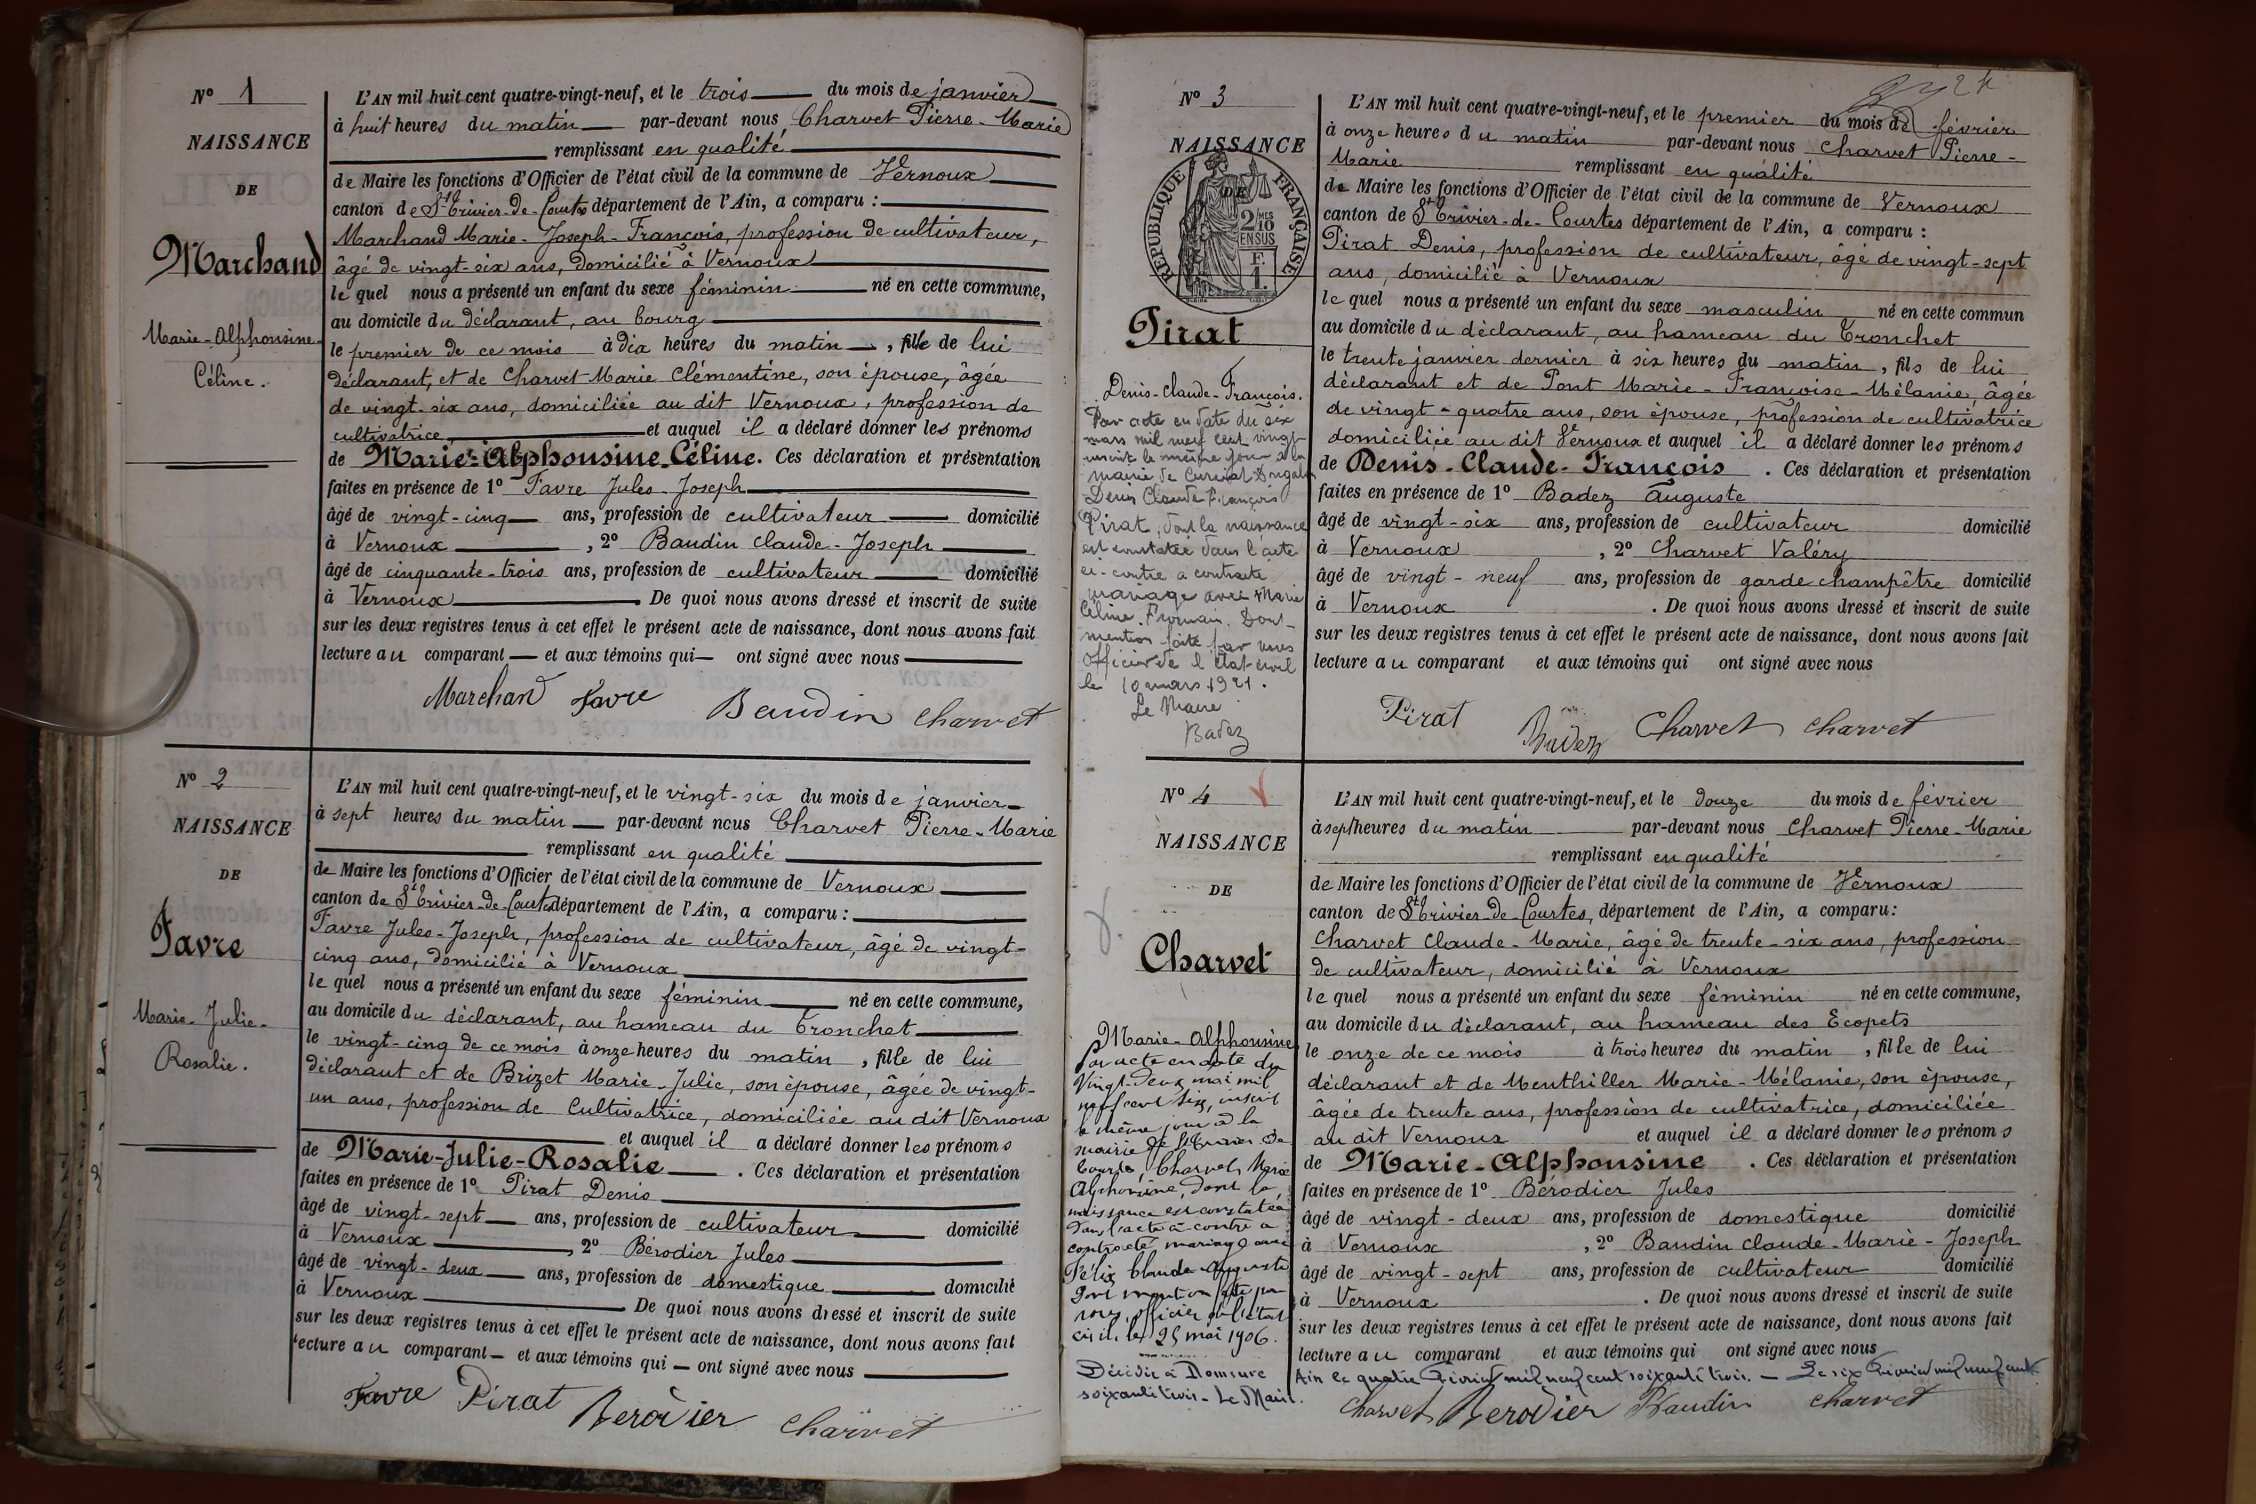 N° 1
NAISSANCE
DE
Marchand
Marie-Alphonsine-
Céline.
L'AN mil huit cent quatre-vingt-neuf, et le trois du mois de janvier
à huit heures du matin par-devant nous Charvet Pierre-Marie
remplissant en qualité
de Maire les fonctions d'Officier de l'état civil de la commune de Vernoux
canton de St Trivier-de-Courtes département de l'Ain, a comparu :
Marchand Marie-Joseph-François, profession de cultivateur,
âgé de vingt-six ans, domicilié à Vernoux
le quel nous a présenté un enfant du sexe féminin né en cette commune,
au domicile du déclarant, au bourg
le premier de ce mois à dix heures du matin, fille de lui
déclarant, et de Charvet Marie Clémentine, son épouse, âgée
de vingt-six ans, domiciliée au dit Vernoux, profession de
cultivatrice, et auquel il a déclaré donner les prénoms
de Marie-Alphonsine-Céline. Ces déclaration et présentation
faites en présence de 1° Favre Jules-Joseph
âgé de vingt-cinq ans, profession de cultivateur domicilié
à Vernoux, 2° Baudin Claude-Joseph
âgé de cinquante-trois ans, profession de cultivateur domicilié
à Vernoux. De quoi nous avons dressé et inscrit de suite
sur les deux registres tenus à cet effet le présent acte de naissance, dont nous avons fait
lecture au comparant et aux témoins qui ont signé avec nous
Marchand Favre Baudin Charvet
N° 2
NAISSANCE
DE
Favre
Marie-Julie-
Rosalie.
L'AN mil huit cent quatre-vingt-neuf, et le vingt-six du mois de janvier
à sept heures du matin par-devant nous Charvet Pierre-Marie
remplissant en qualité
de Maire les fonctions d'Officier de l'état civil de la commune de Vernoux
canton de St Trivier-de-Courtes département de l'Ain, a comparu :
Favre Jules-Joseph, profession de cultivateur, âgé de vingt-
cinq ans, domicilié à Vernoux
le quel nous a présenté un enfant du sexe féminin né en cette commune,
au domicile du déclarant, au hameau du Tronchet
le vingt-cinq de ce mois à onze heures du matin, fille de lui
déclarant et de Brizet Marie-Julie, son épouse, âgée de vingt-
un ans, profession de Cultivatrice, domiciliée au dit Vernoux
et auquel il a déclaré donner les prénoms
de Marie-Julie-Rosalie. Ces déclaration et présentation
faites en présence de 1° Pirat Denis
âgé de vingt-sept ans, profession de cultivateur domicilié
à Vernoux, 2° Bérodier Jules
âgé de vingt-deux ans, profession de domestique domicilié
à Vernoux. De quoi nous avons dressé et inscrit de suite
sur les deux registres tenus à cet effet le présent acte de naissance, dont nous avons fait
lecture au comparant et aux témoins qui ont signé avec nous
Favre Pirat Berodier Charvet
24
N° 3
NAISSANCE
DE
RÉPUBLIQUE FRANÇAISE
2/10 MES
EN SUS
F.
1.
Pirat
Denis-Claude-François.
Par acte en date du six
mars mil neuf cent vingt-
un inscrit le même jour à la
mairie de Curciat Dongalon
Denis Claude François
Pirat, dont la naissance
est constatée dans l'acte
ci-contre a contracté
mariage avec Marie
Céline Dont
mention faite par nous
officier de l'état-civil
le 10 mars 1921.
Le Maire
Badez
L'AN mil huit cent quatre-vingt-neuf, et le premier du mois de février
à onze heures du matin par-devant nous Charvet Pierre-
Marie remplissant en qualité
de Maire les fonctions d'Officier de l'état civil de la commune de Vernoux
canton de St Trivier-de-Courtes département de l'Ain, a comparu :
Pirat Denis, profession de cultivateur, âgé de vingt-sept
ans, domicilié à Vernoux
le quel nous a présenté un enfant du sexe masculin né en cette commun
au domicile du déclarant, au hameau du Tronchet
le trente janvier dernier à six heures du matin, fils de lui
déclarant et de Pont Marie-Françoise-Mélanie, âgée
de vingt-quatre ans, son épouse, profession de cultivatrice
domiciliée au dit Vernoux et auquel il a déclaré donner les prénoms
de Denis-Claude-François. Ces déclaration et présentation
faites en présence de 1° Badez Auguste
âgé de vingt-six ans, profession de cultivateur domicilié
à Vernoux, 2° Charvet Valéry
âgé de vingt-neuf ans, profession de garde champêtre domicilié
à Vernoux. De quoi nous avons dressé et inscrit de suite
sur les deux registres tenus à cet effet le présent acte de naissance, dont nous avons fait
lecture au comparant et aux témoins qui ont signé avec nous
Pirat Badez Charvet Charvet
N° 4
NAISSANCE
DE
Charvet
Marie-Alphonsine
Par acte en date du
vingt-deux mai mil
neuf cent six, inscrit
le même jour à la
mairie de St Trivier de
Courtes, Charvet Marie
Alphonsine, dont la
naissance est constatée
dans l'acte ci-contre a
contracté mariage avec
Félix Claude Auguste
Dont mention faite par
nous, officier de l'état
civil, le 25 mai 1906.
L'AN mil huit cent quatre-vingt-neuf, et le douze du mois de février
à sept heures du matin par-devant nous Charvet Pierre-Marie
remplissant en qualité
de Maire les fonctions d'Officier de l'état civil de la commune de Vernoux
canton de St Trivier-de-Courtes, département de l'Ain, a comparu:
Charvet Claude-Marie, âgé de trente-six ans, profession
de cultivateur, domicilié à Vernoux
le quel nous a présenté un enfant du sexe féminin né en cette commune,
au domicile du déclarant, au hameau des Ecopets
le onze de ce mois à trois heures du matin, fille de lui
déclarant et de Menthiller Marie-Mélanie, son épouse,
âgée de trente ans, profession de cultivatrice, domiciliée
au dit Vernoux et auquel il a déclaré donner les prénoms
de Marie-Alphonsine. Ces déclaration et présentation
faites en présence de 1° Bérodier Jules
âgé de vingt-deux ans, profession de domestique domicilié
à Vernoux, 2° Baudin Claude-Marie-Joseph
âgé de vingt-sept ans, profession de cultivateur domicilié
à Vernoux. De quoi nous avons dressé et inscrit de suite
sur les deux registres tenus à cet effet le présent acte de naissance, dont nous avons fait
lecture au comparant et aux témoins qui ont signé avec nous
Décédée à Domsure Ain le quatre Février mil neuf cent soixante trois. — Le six Février mil neuf cent
soixante trois - Le Maire.
Charvet Berodier Baudin Charvet